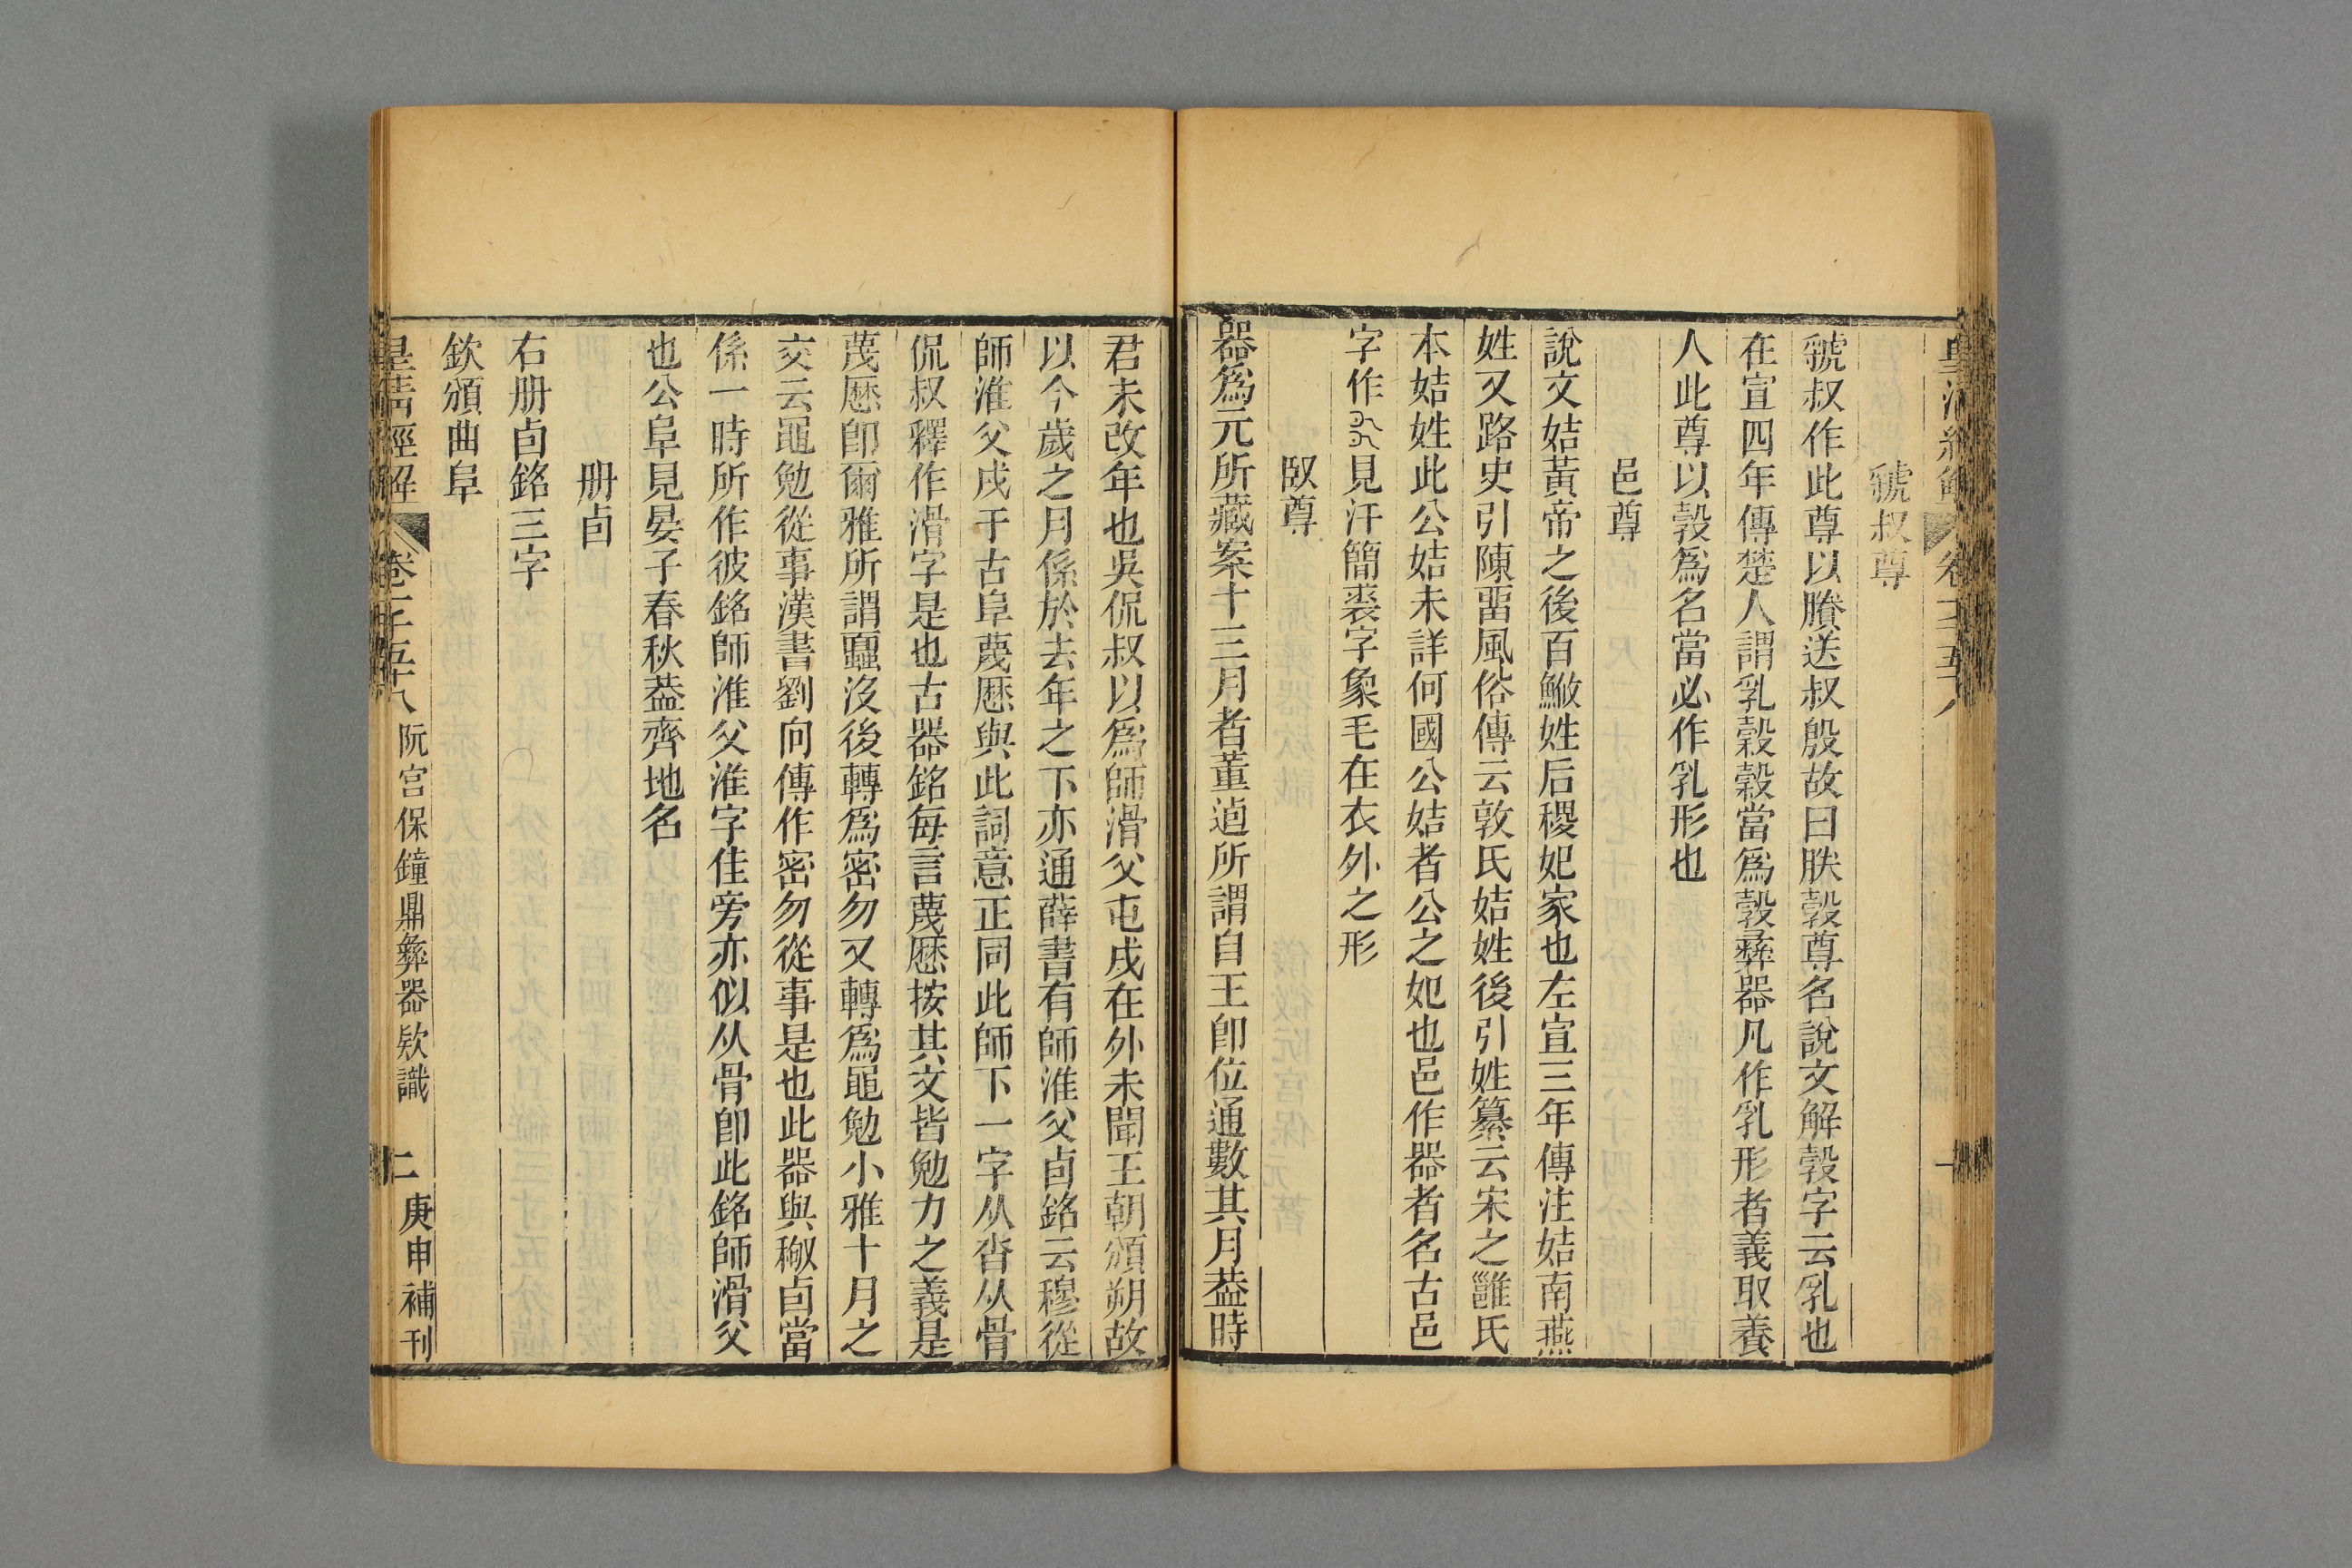 虢叔尊
虢叔作此尊以賸送叔殷故曰朕㝅尊名說文解㝅字云乳也
在宣四年傳楚人謂乳穀穀當爲㝅彞器凡作乳形者義取養
人此尊以㝅爲名當必作乳形也
邑尊
說文姞黃帝之後百鮍姓后稷妃家也左宣三年傳注姞南燕
姓又路史引陳畱風俗傳云敦氏姞姓後引姓纂云宋之雝氏
本姞姓此公姞未詳何國公姞者公之妃也邑作器者名古邑
字作見汗簡裘字象毛在衣外之形
臤尊
器爲元所藏案十三月者董逌所謂自王卽位通數其月葢時
君未改年也吳侃叔以爲師滑父屯戍在外未聞王朝頒朔故
以今歲之月係於去年之下亦通薛書有師淮父卣銘云穆從
師淮父戍于古阜蔑厯與此詞意正同此師下一字从㳫从骨
侃叔釋作滑字是也古器銘每言蔑厯按其文皆勉力之義是
蔑厯卽爾雅所謂蠠沒後轉爲密勿又轉爲黽勉小雅十月之
交云黽勉從事漢書劉向傳作密勿從事是也此器與卣當
係一時所作彼銘師淮父淮字佳旁亦似从骨卽此銘師滑父
也公阜見晏子春秋葢齊地名
册卣
右册卣銘三字
欽頒曲阜
皇淸經解 卷一千五十八 阮宮保鐘鼎彝器欵識 二 庚申補刊